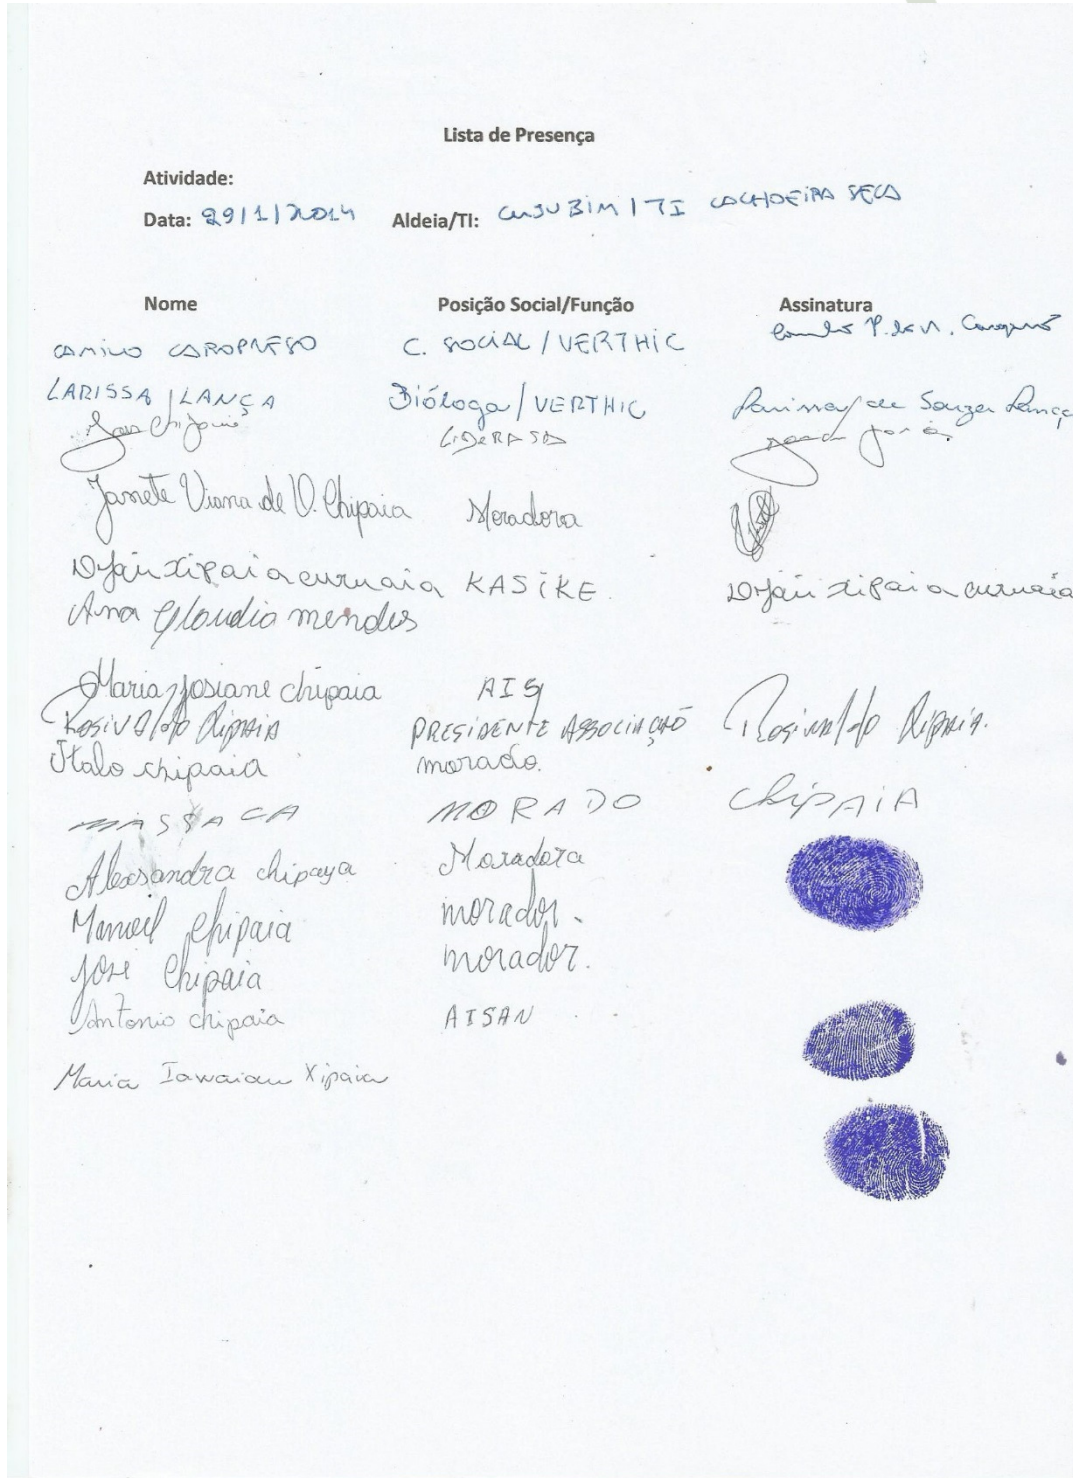 Lista de Presença
Atividade:
Data: 29/1/2014 Aldeia/TI: CUJUBIM / TI CACHOEIRA SECA
Nome Posição Social/Função Assinatura
CAMILO CAROPRESO C. SOCIAL / VERTHIC
LARISSA LANÇA Bióloga / VERTHIC Larissa de Souza Lança
LiDERASA
Janete Viana de O. Chipaia Moradora
xipaia curuaia KASiKE. xipaia curuaia
Ana Claudia mendes
Maria Josiane chipaia AIS
Rosivaldo Xipaia PRESIDENTE ASSOCIAÇÃO Rosivaldo Xipaia.
Italo chipaia morado.
MASSACA MORADO ChipAiA
Alessandra chipaya Moradora
Manoel Chipaia morador.
José Chipaia morador.
Antonio chipaia AISAN
Maria Xipaia